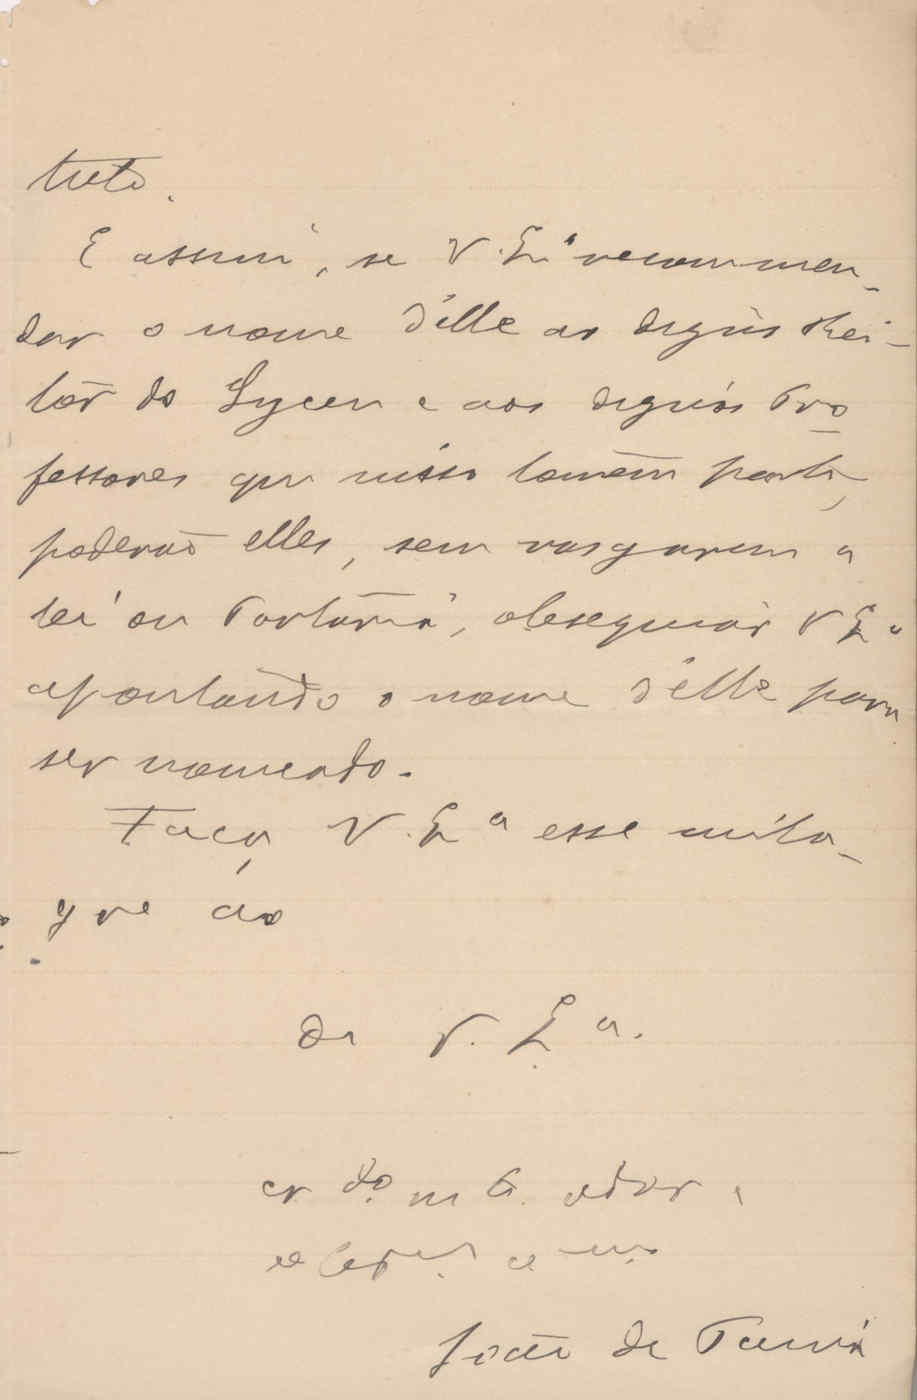 tuto.
E assim, se V. Ex.ª recommen-
dar o nome d'elle ao digno Rei-
tor do Lyceu e aos dignos Pro-
fessores que nisso tomem parte,
poderão elles, sem rasgarem a
lei ou Portaria, obsequiar V Ex.ª
apontando o nome d'elle para
ser nomeado.
Faça V. Ex.ª esse mila-
gre ao
de V. Ex.ª.
cr.do m.to ador
João de